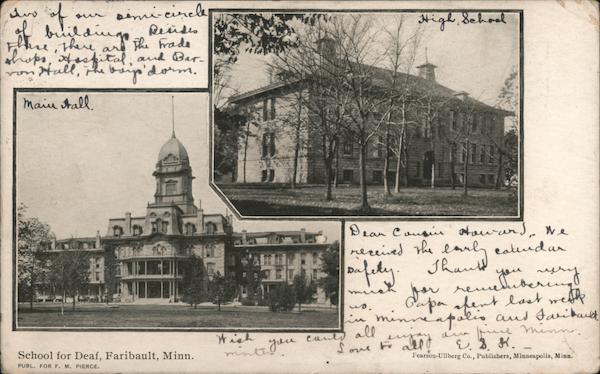 Two of our semi-circle
of buildings. Besides
these, there are the trade
shops, Hospital, and Bar-
ron Hall, the boys' dorm.
High School
Main Hall.
Dear Cousin Howard, We
received the lovely calendar
safely. Thank you very
much for remembering
us. Papa spent last week
in Minneapolis and Faribault.
Wish you could all enjoy our fine Minn.
winter. Love to all, E. S. K.
School for Deaf, Faribault, Minn.
PUBL. FOR F. M. PIERCE.
Pearson-Ullberg Co., Publishers, Minneapolis, Minn.